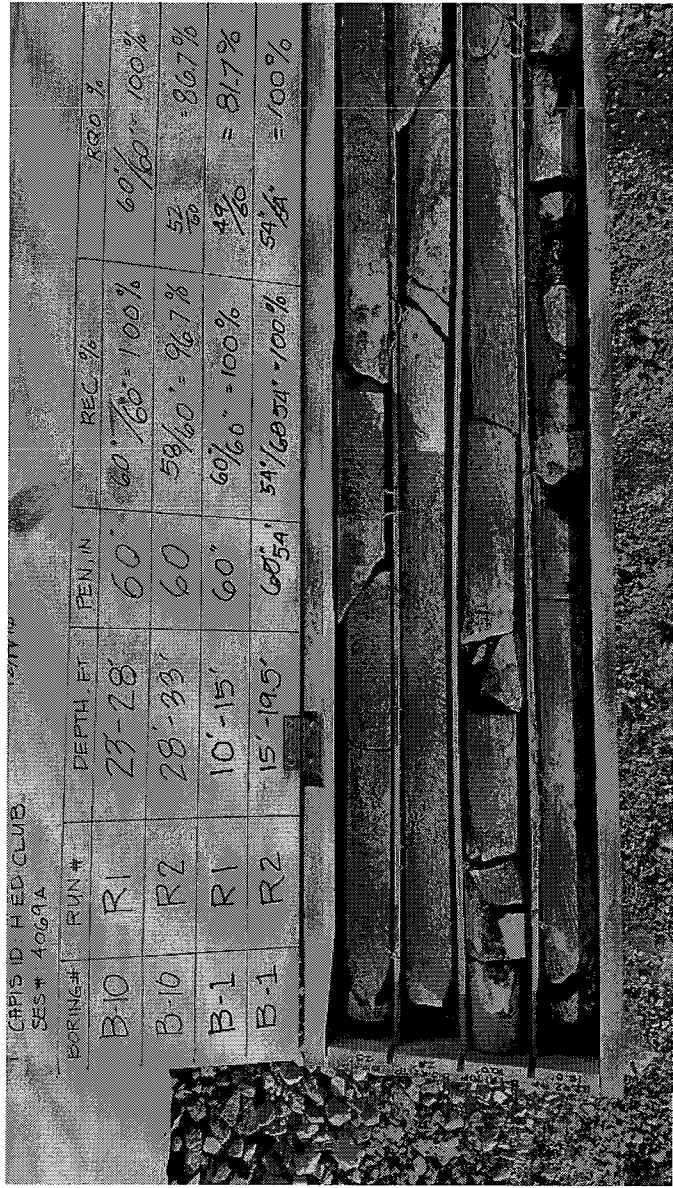 CAPIS ID: HED CLUB
SES# 4069A
BORING# RUN# DEPTH, FT PEN, IN REC % RQD %
B-10 R1 23'-28' 60" 60"/60" = 100% 60"/60" = 100%
B-10 R2 28'-33' 60 58/60" = 96.7% 52/60 = 86.7%
B-1 R1 10'-15' 60" 60"/60" = 100% 49/60 = 81.7%
B-1 R2 15'-19.5' 60" 54" 54"/60 54" = 100% 54"/54" = 100%